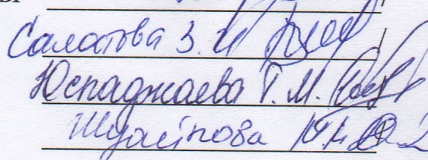 Саламова З. И.
Юспаджаева Т. М.
Шуаипова